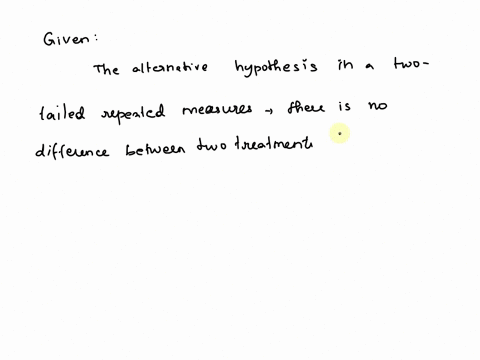 Given:
The alternative hypothesis in a two-
tailed repeated measures → there is no
difference between two treatments